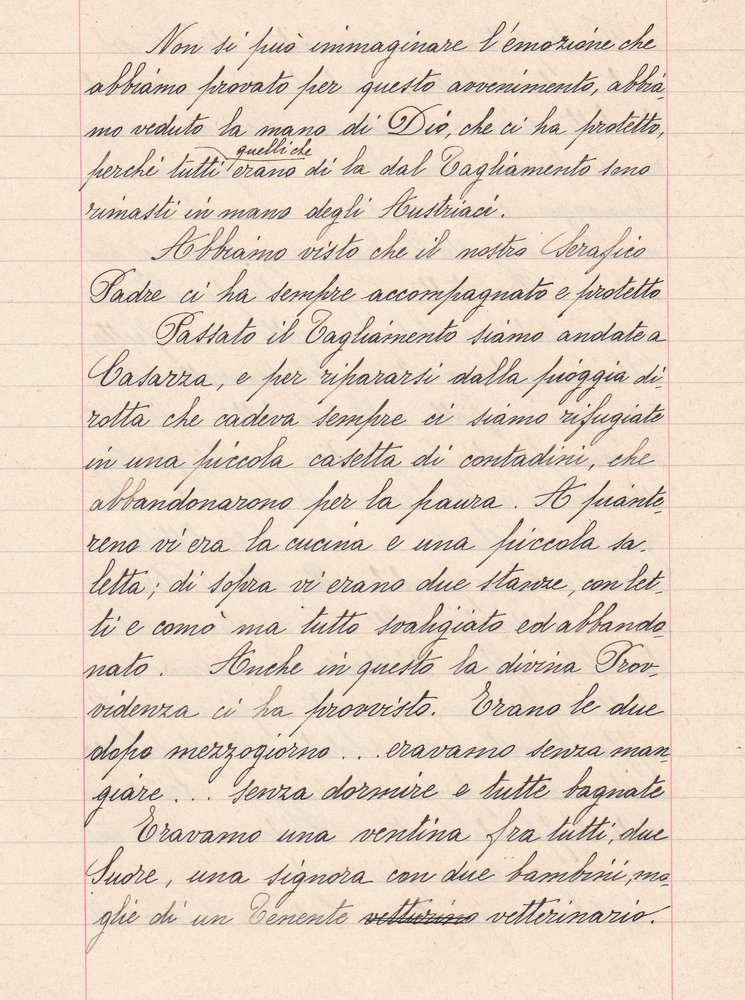 Non si può immaginare l'emozione che
abbiamo provato per questo avvenimento, abbia-
mo veduto la mano di Dio, che ci ha protetto,
perché tutti quelli che erano di la dal Tagliamento sono
rimasti in mano degli Austriaci.
Abbiamo visto che il nostro Serafico
Padre ci ha sempre accompagnato e protetto
Passato il Tagliamento siamo andate a
Casarza, e per ripararsi dalla pioggia di-
rotta che cadeva sempre ci siamo rifugiate
in una piccola casetta di contadini, che
abbandonarono per la paura. A piante-
reno vi era la cucina e una piccola sa-
letta; di sopra vi erano due stanze, con let-
ti e comò ma tutto svaligiato ed abbando-
nato. Anche in questo la divina Prov-
videnza ci ha provvisto. Erano le due
dopo mezzogiorno... eravamo senza man-
giare... senza dormire e tutte bagnate
Eravamo una ventina fra tutti, due
Suore, una signora con due bambini, mo-
glie di un Tenente vetturino vetterinario.